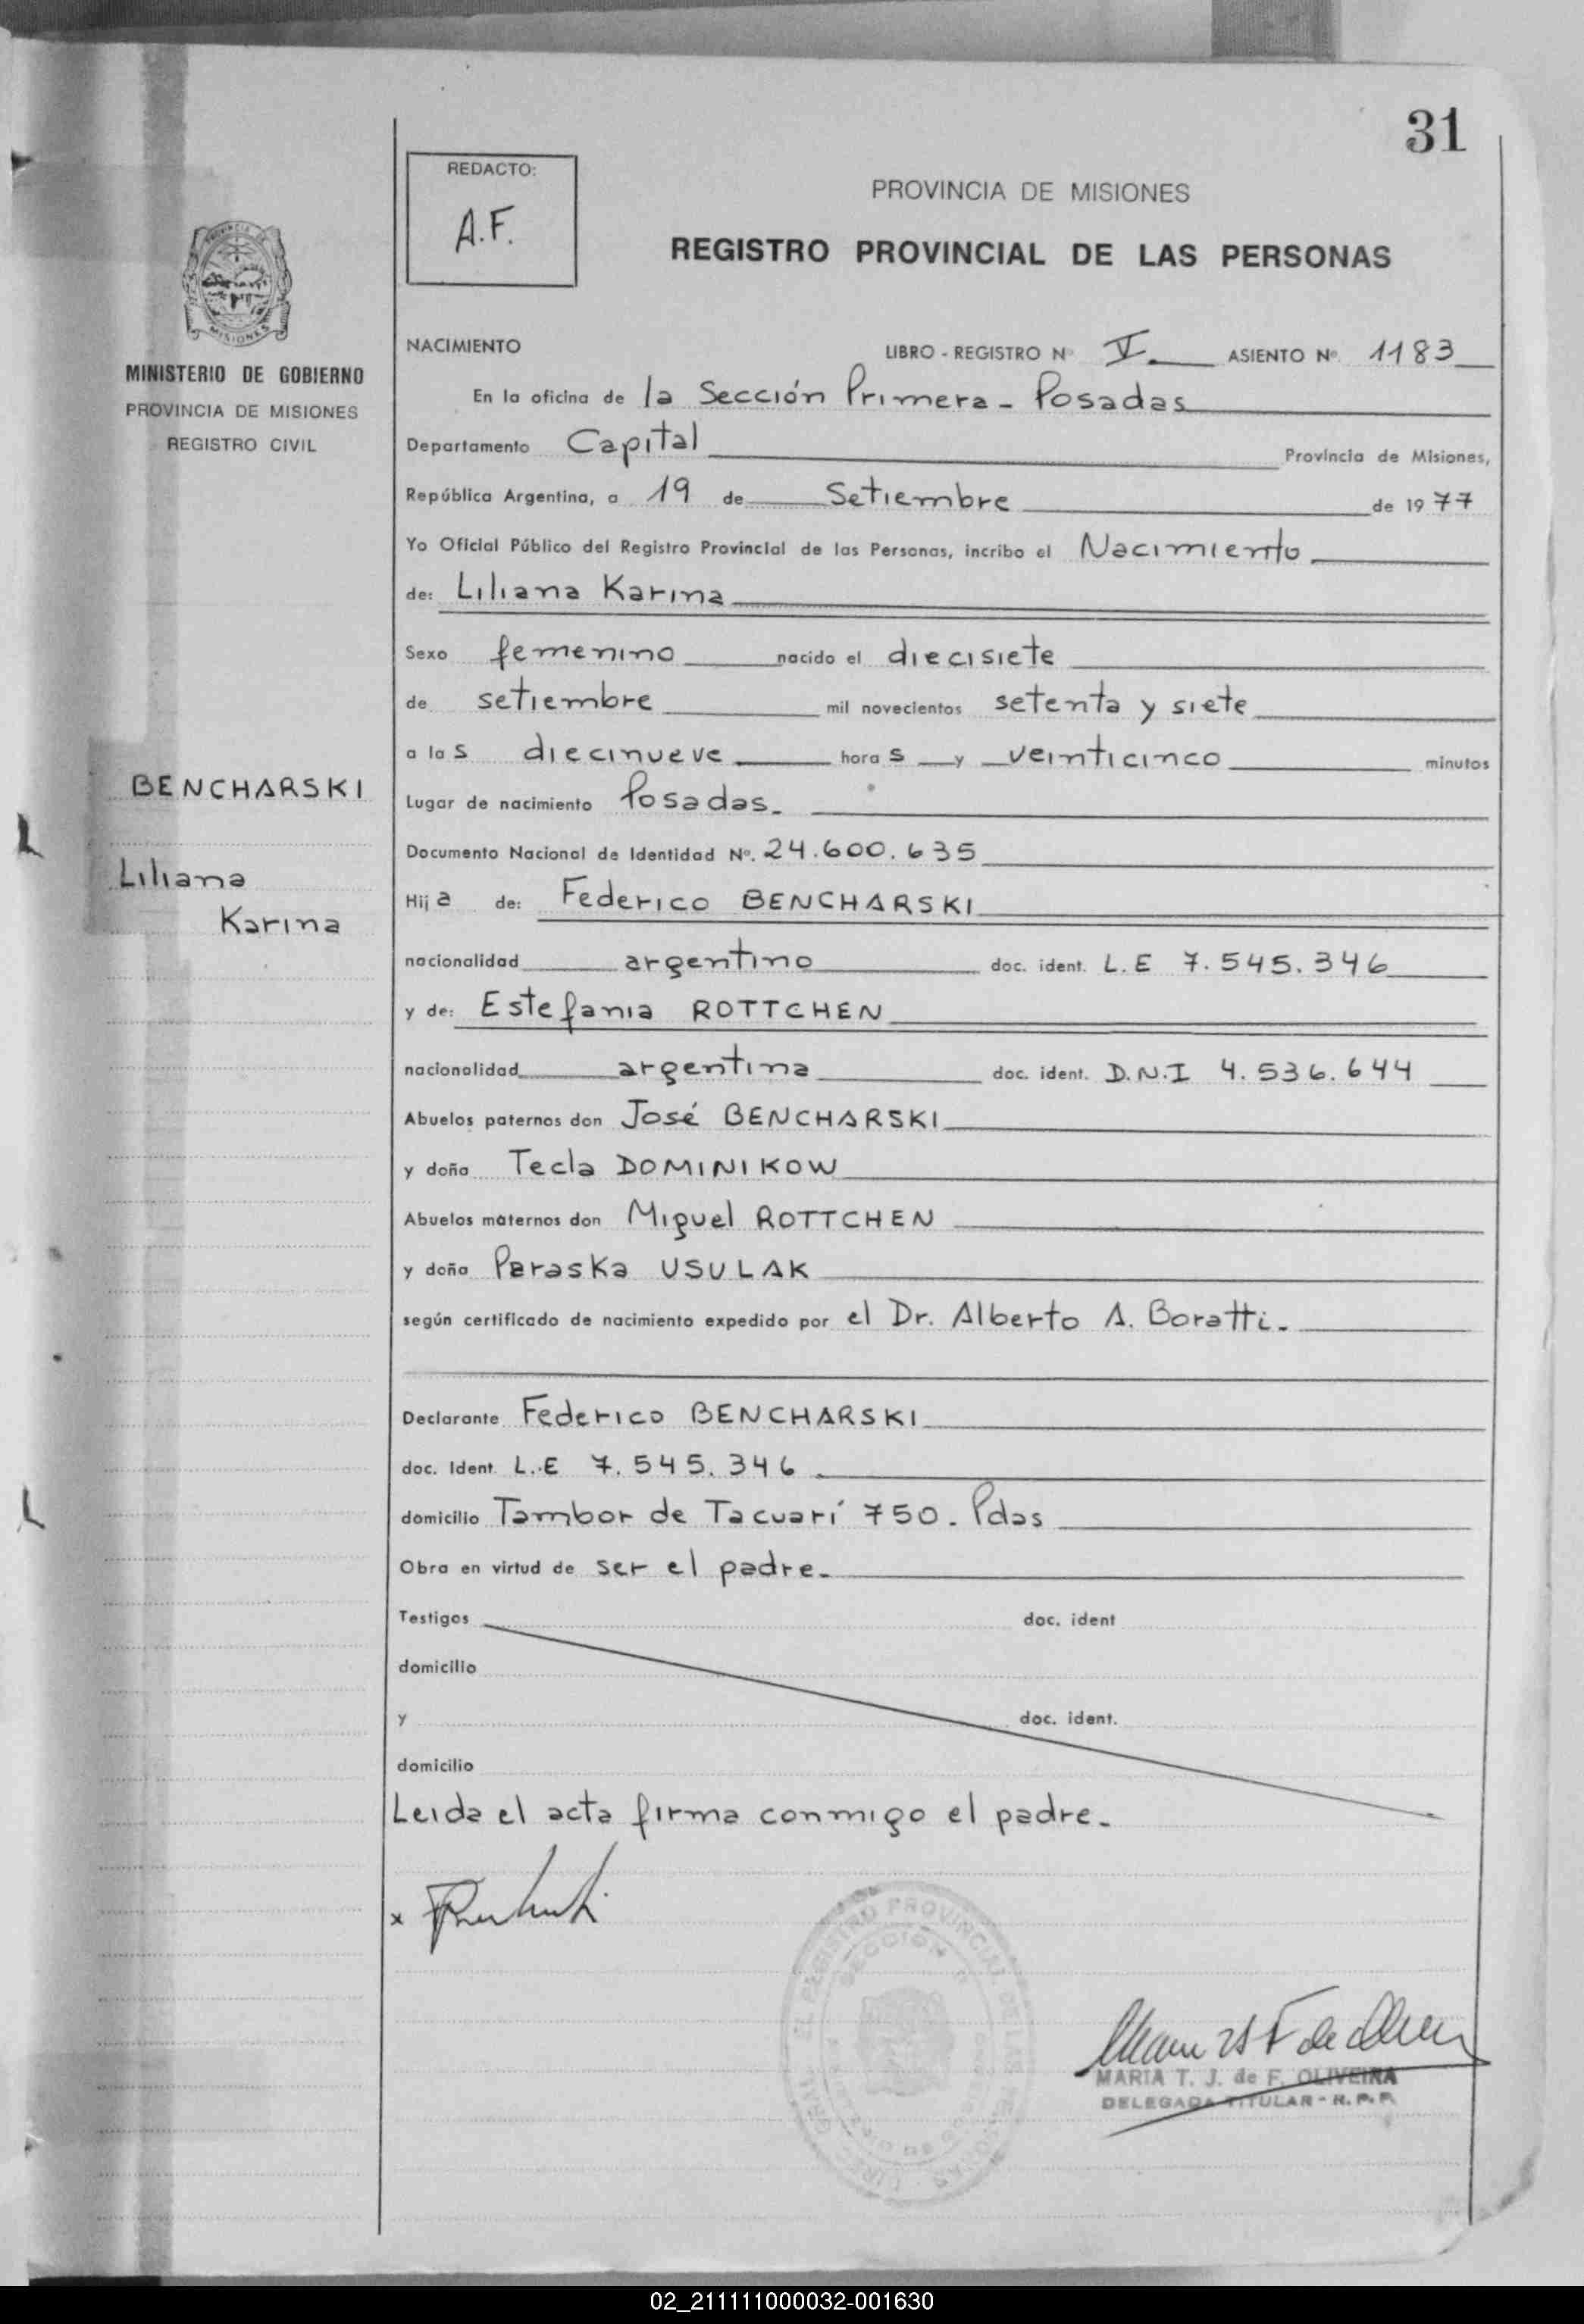 31
REDACTO:
A.F.
PROVINCIA DE MISIONES
REGISTRO PROVINCIAL DE LAS PERSONAS
MISIONES
MINISTERIO DE GOBIERNO
PROVINCIA DE MISIONES
REGISTRO CIVIL
BENCHARSKI
Liliana
Karina
NACIMIENTO LIBRO - REGISTRO Nº V. ASIENTO Nº 1183
En la oficina de la Sección Primera - Posadas
Departamento Capital Provincia de Misiones,
República Argentina, a 19 de Setiembre de 1977
Yo Oficial Público del Registro Provincial de las Personas, incribo el Nacimiento
de: Liliana Karina
Sexo femenino nacido el diecisiete
de setiembre mil novecientos setenta y siete
a las diecinueve horas y veinticinco minutos
Lugar de nacimiento Posadas.
Documento Nacional de Identidad Nº. 24.600.635
Hija de: Federico BENCHARSKI
nacionalidad argentino doc. ident. L.E 7.545.346
y de: Estefania ROTTCHEN
nacionalidad argentina doc. ident. D.N.I 4.536.644
Abuelos paternos don José BENCHARSKI
y doña Tecla DOMINIKOW
Abuelos maternos don Miguel ROTTCHEN
y doña Paraska USULAK
según certificado de nacimiento expedido por el Dr. Alberto A. Boratti.
Declarante Federico BENCHARSKI
doc. Ident. L.E 7.545.346
domicilio Tambor de Tacuarí 750. Pdas
Obra en virtud de ser el padre.
Testigos doc. ident
domicilio
y doc. ident.
domicilio
Leida el acta firma conmigo el padre.
x
MARIA T. J. de F. OLIVEIRA
DELEGADA TITULAR - R. P. P.
02_211111000032-001630